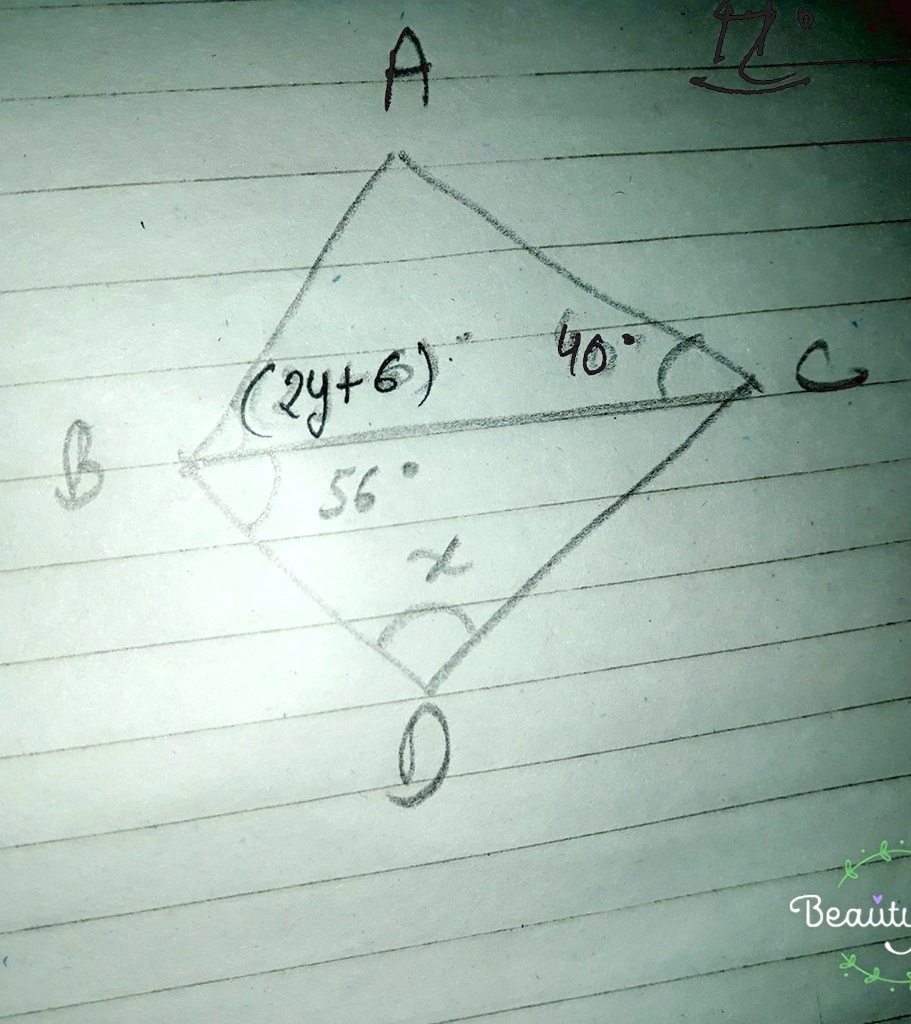 A
(2y+6)°
40°
C
B
56°
x
D
Beauty